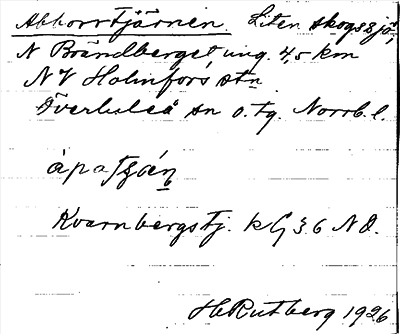 Abborrtjärnen. Liten skogssjö,
N Brändberget ung. 4,5 km
NV Holmfors st:n
Överluleå sn o. tg. Norrb. l.
Kvarnbergstj. kG 36 NO.
H. Rutberg 1926